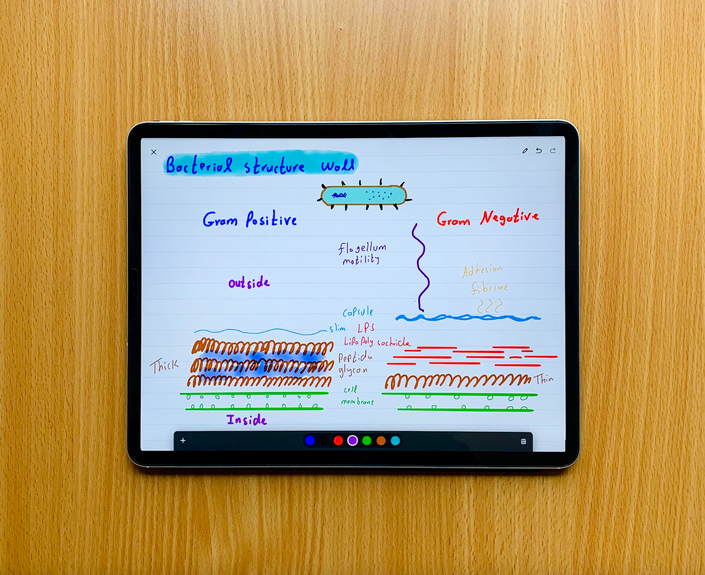 Bacterial structure wall
Gram Positive
Gram Negative
flagellum
motility
outside
Adhesion
fibrine
capsule
slim
LPS
Lipopoly sachride
Thick
Peptido
glycan
Thin
cell
membrane
Inside